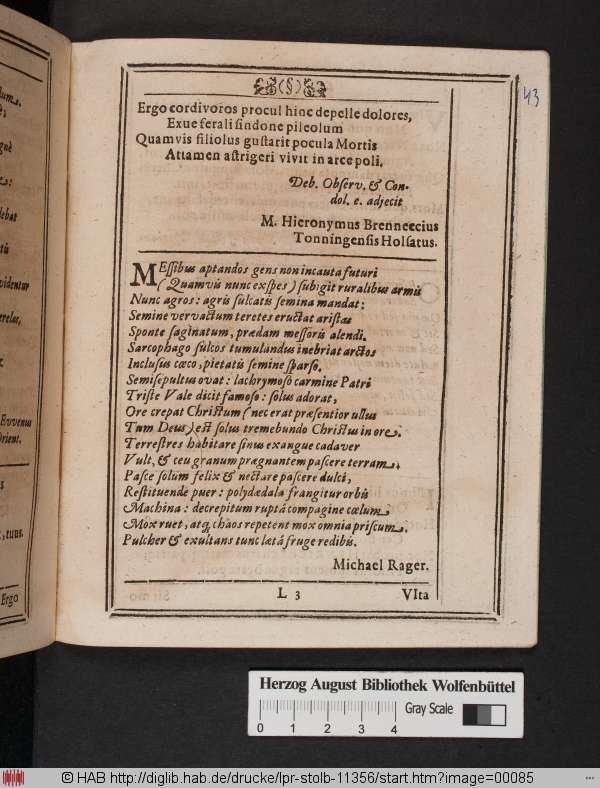 (§)
43
Ergo cordivoros procul hinc depelle dolores,
Exue ferali sindone pileolum
Quamvis filiolus gustarit pocula Mortis
Attamen astrigeri vivit in arce poli.
Deb. Observ. & Con-
dol. e. adjecit
M. Hieronymus Brenneccius
Tonningensis Holsatus.
MEssibus aptandos gens non incauta futuri
(Quamvis nunc exspes) subigit ruralibus armis
Nunc agros: agris sulcatis semina mandat:
Semine vervactum teretes eructat aristas
Sponte saginatum, prædam messoris alendi.
Sarcophago sulcos tumulandus inebriat arctos
Inclusus cœco, pietatis semine sparso.
Semisepultus ovat: lachrymoso carmine Patri
Triste Vale dicit famoso: solus adorat,
Ore crepat Christum (nec erat præsentior ullus
Tum Deus) est solus tremebundo Christus in ore.
Terrestres habitare sinus exangue cadaver
Vult, & ceu granum prægnantem pascere terram.
Pasce solum felix & nectare pascere dulci,
Restituende puer: polydædala frangitur orbis
Machina: decrepitum ruptâ compagine cœlum
Mox ruet, atq; chaos repetent mox omnia priscum.
Pulcher & exultans tunc lætâ fruge redibis.
Michael Rager.
L 3
VIta
videntur
Evvenus
Orient.
Ergo
Herzog August Bibliothek Wolfenbüttel
Gray Scale
0 1 2 3 4
© HAB http://diglib.hab.de/drucke/lpr-stolb-11356/start.htm?image=00085